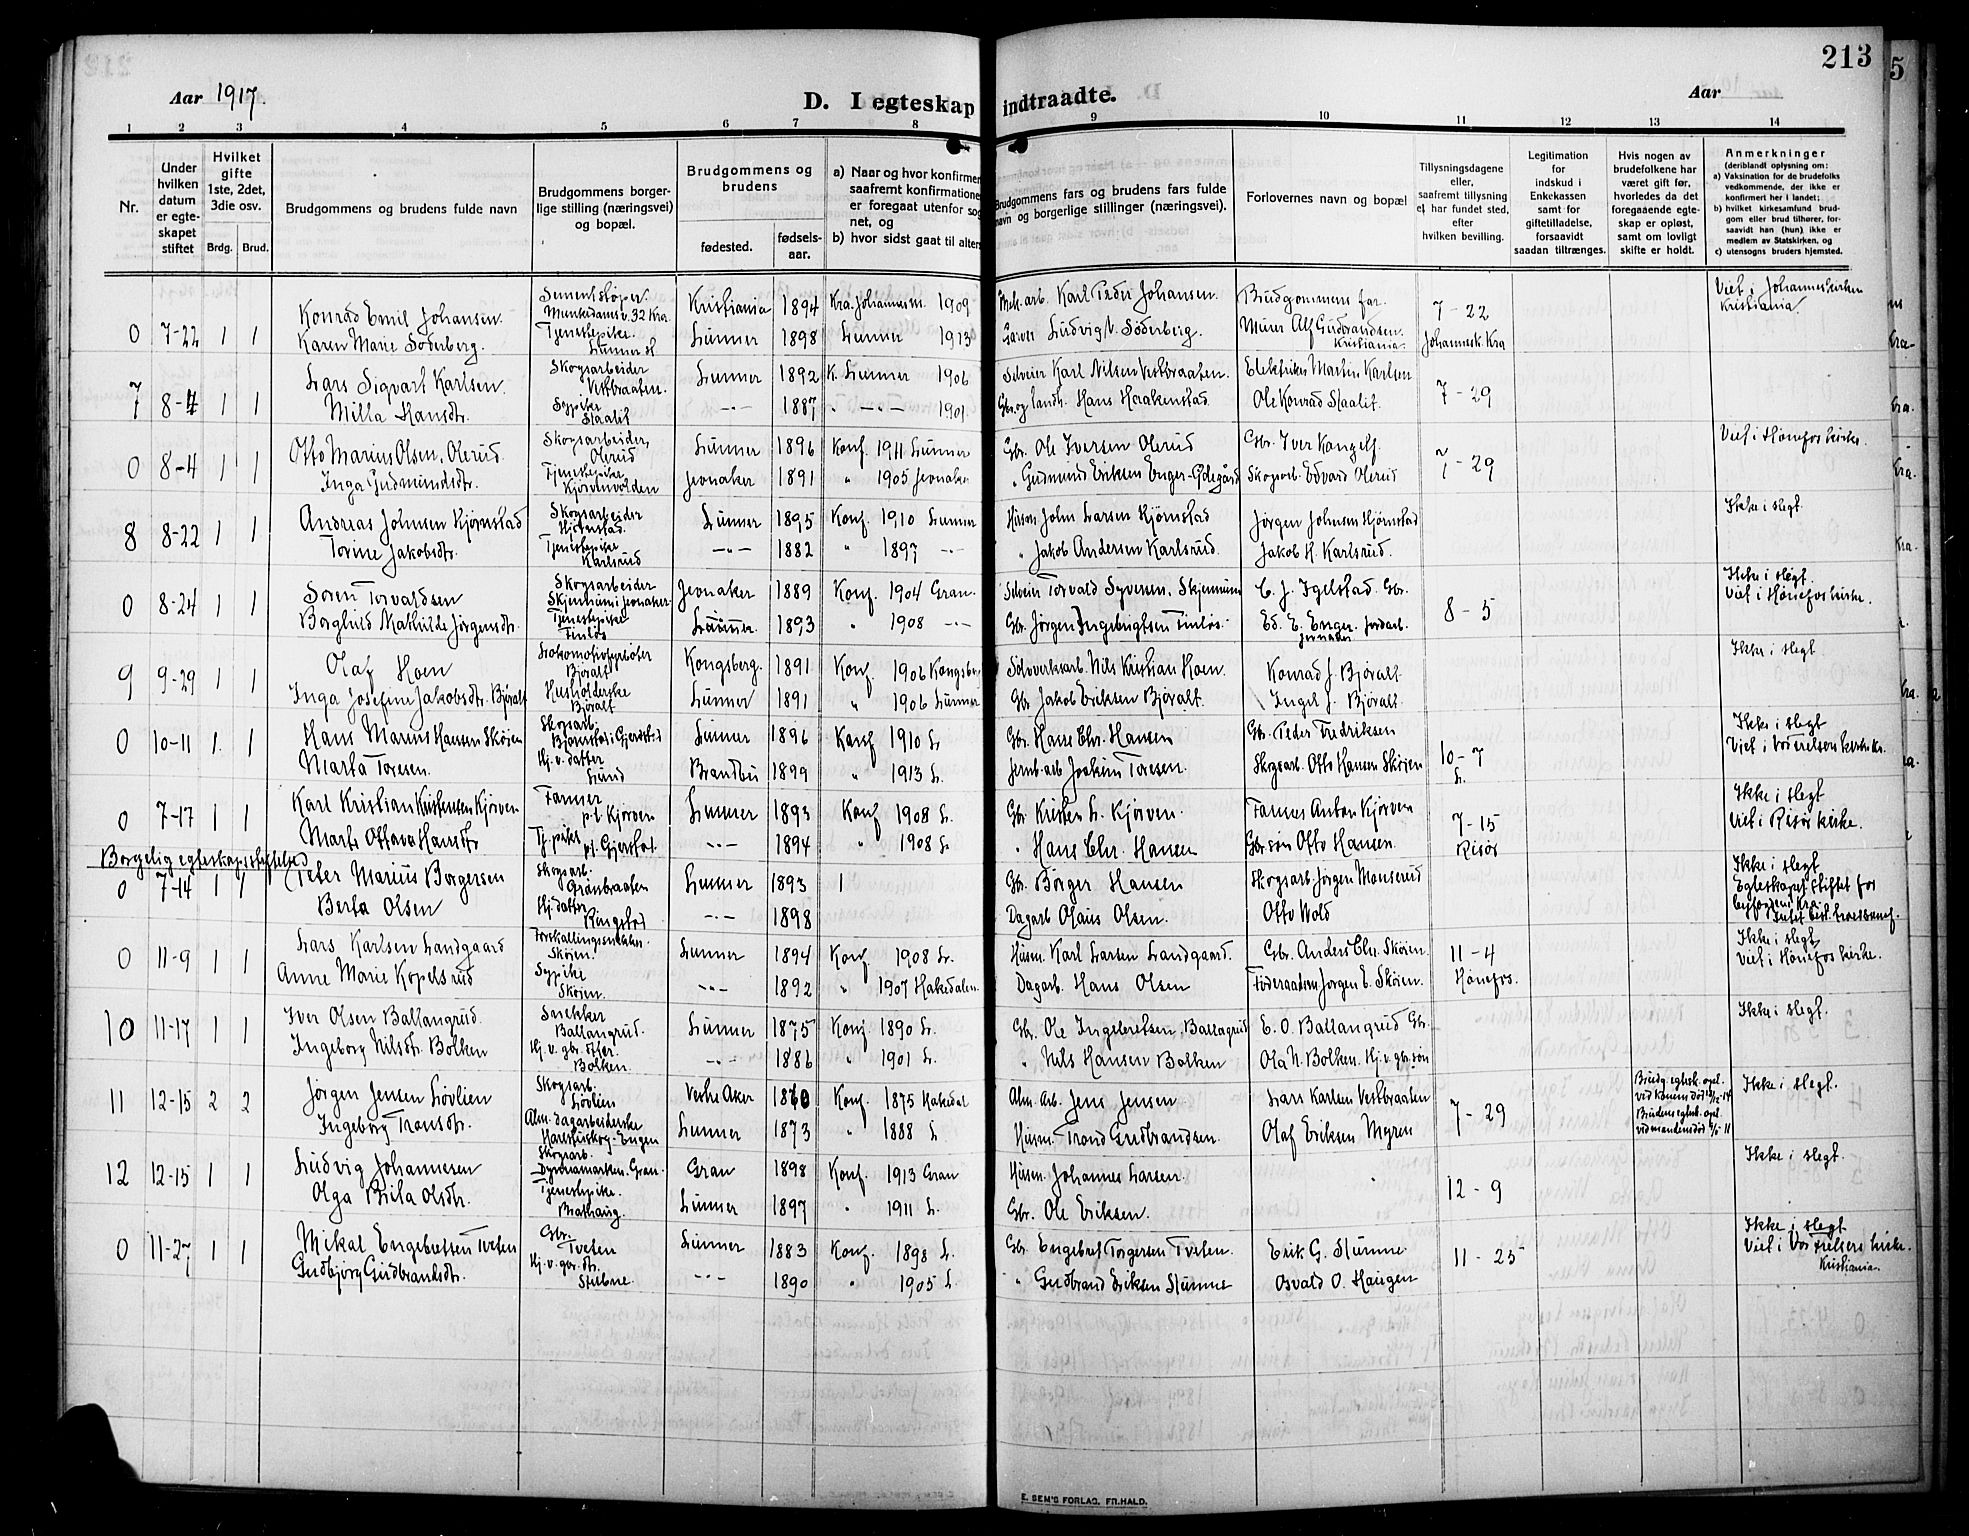 213
Aar 1917.
D. I egteskap indtraadte.
Aar
1 2 3 4 5 6 7 8 9 10 11 12 13 14
Nr.
Under hvilken datum er egteskapet stiftet
Hvilket gifte 1ste, 2det, 3die osv.
Brdg. Brud.
Brudgommens og brudens fulde navn
Brudgommens borgerlige stilling (næringsvei) og bopæl.
Brudgommens og brudens
fødested.
fødselsaar.
a) Naar og hvor konfirmert, saafremt konfirmationen er foregaat utenfor sognet, og
b) hvor sidst gaat til alters
Brudgommens fars og brudens fars fulde navn og borgerlige stillinger (næringsvei).
Forlovernes navn og bopæl
Tillysningsdagene eller, saafremt tillysning ei har fundet sted, efter hvilken bevilling.
Legitimation for indskud i Enkekassen samt for giftetilladelse, forsaavidt saadan tiltrænges.
Hvis nogen av brudefolkene har været gift før, hvorledes da det foregaaende egteskap er opløst, samt om lovligt skifte er holdt.
Anmerkninger
(deriblandt oplysning om:
a) Vaksination for de brudefolks vedkommende, der ikke er konfirmert her i landet;
b) hvilket kirkesamfund brudgom eller brud tilhører, forsaavidt han (hun) ikke er medlem av Statskirken, og
c) utensogns bruders hjemsted.
0 7-22 1 1 Konrad Emil Johansen. Munkedamsv. 32 Kra. Kristiania 1894 Kra. Johannesm. 1909 Mek. arb. Karl Peder Johansen. Brudgommens far. 7-22 Viet i Johanneskirken Kristiania.
Karen Marie Söderberg. Tjenestepike. Lunner st. Lunner 1898 Lunner 1913 Garver Ludvig V. Söderberg. Murer Alf Gudbrandsen. Kristiania. Johannesk. Kra
7 8-4 1 1 Lars Sigvart Karlsen. Skogsarbeider Vestbraaten. Lunner 1892 K. Lunner 1906 Selveier Karl Nilsen Vestbraaten. Elektriker Martin Karlsen 7-29
Milla Hansdtr. Sypike Slaatit 1887 1901. Gbr. og landh. Hans Haakenstad. Ole Konrad Slaatit.
0 8-4 1 1 Otto Marius Olsen, Olerud. Skogsarbeider, Olerud Lunner 1896 Konf. 1911 Lunner Gbr. Ole Iversen Olerud Gbr. Iver Kangelf. 7-29 Viet i Hønefos kirke.
Inga Gudmundsdtr. Tjenestepike Kjørvenvolden Jevnaker 1891 " 1905 Jevnaker " Gudmund Eriksen Enger-Ødegård Skogsarb. Edvard Olerud
8 8-22 1 1 Andreas Johnsen Hjørnstad Skogsarbeider Hjørnstad. Lunner 1895 Konf. 1910 Lunner Husm. John Larsen Hjørnstad Jørgen Johnsen Hjørnstad Ikke i slegt.
Torine Jakobsdtr. Tjenestepike Karlsrud 1882 " 1897 " Jakob Andersen Karlsrud. Jakob H. Karlsrud.
0 8-24 1 1 Soren Torvaldsen Skogsarbeider Skjenhum i Jevnaker Jevnaker 1889 Konf. 1904 Gran. Selveier Torvald Syversen. Skjennum C. J. Igelstad. Gbr. 8-5 Ikke i slegt. Viet i Hønefos kirke.
Borghild Mathilde Jørgensdtr. Tjenestepike Tinlös Lunner. 1893 " 1908 Gbr. Jørgen Ingebrigtsen Tinlös. Ed. E. Enger. Jordarb. Jevnaker
9 9-29 1 1 Olaf Hoen Lokomotivfyrbøter Björalt Kongsberg. 1891 Konf 1906 Kongsberg Sölvverksarb. Nils Kristian Hoen. Konrad J. Bjøralt. Ikke i slegt
Inga Josefine Jakobsdtr. Björalt Husholderske Björalt Lunner 1891 " 1906 Lunner Gbr Jakob Eriksen Björalt. Ingel J. Björalt.
0 10-11 1. 1 Hans Marius Hansen Skøien Skogsarb. Lunner 1896 Konf 1910 L. Gbr. Hans Chr. Hansen Gbr. Peder Fredriksen 10-7 L. Ikke i slegt Viet i Vor Frelsers kirke Kr.
Marta Toresen. Hj. v. datter Lund Brandbu 1899 " 1913 L. Jernb. arb. Joakim Toresen. Skogsarb. Otto Hansen Skøien
0 7-17 1 1 Karl Kristian Kristensen Kjörven Farmer p.t. Kjörven Lunner 1893 Konf 1908 L. Gbr Kristen L. Kjörven. Farmer Anton Kjörven 7-15 Risör Ikke i slegt viet i Risör kirke.
Marte Ottava Hansdtr Tj. pike 1894 " 1908 L " Hans Chr. Hansen Gbr.søn Otto Hansen.
Borgelig egteskapsstiftelse
0 7-14 1 1 Peter Marius Borgersen Skogsarb. Granbraaten Lunner 1893 Gbr. Börger Hansen Skogsarb. Jørgen Monserud Ikke i slegt Egteskapet stiftet for byfogden i Kra.
Berta Olsen Hj. datter Ringstad 1898 Dagarb Olaus Olsen. Otto Wold
0 11-9 1 1 Lars Karlsen Landgaard Skøien. Lunner 1894 Konf. 1908 L. Husm. Karl Larsen Landgaard. Gbr. Anders Chr. Skøien. 11-4 Hønefos. Ikke i slegt Viet i Hønefos kirke.
Anne Marie Kopelsrud Sypike Skøien. 1892 " 1907 Hakedalen. Dagarb. Hans Olsen Föderaadsm Jørgen E. Skøien.
10 11-17 1 1 Iver Olsen Ballangrud. Snekker Ballangrud. Lunner 1875 Konf. 1890 L. Gbr. Ole Ingebretsen, Ballagrud E. O. Ballangrud Gbr. Ikke i slegt
Ingeborg Nilsdtr. Bolken Hj. v. gbr. dtr. Bolken. 1886 " 1901 L. " Nils Hansen Bolken Ola N. Bolken. Hj. v. gbr. søn
11 12-15 2 2 Jørgen Jensen Løvlien Skogsarb. Løvlien Vestre Aker 1860 Konf. 1875 Hakedal Alm. Arb. Jens Jensen. Lars Karlsen Vestbraaten 7-29 Brudg. egtesk. opl. ved konens död Ikke i slegt.
Ingeborg Tronsdtr. Alm. dagarbeiderske Harestuskog-Engen Lunner 1873 " 1888 L Husm. Trond Gudbrandsen. Olaf Eriksen Myren Brudens egtesk. opl. ved mandens död
12 12-15 1 1 Ludvig Johannesen Skogsarb. Dynnamarken. Gran. Gran 1898 Konf. 1913 Gran Husm. Johannes Larsen. 12-9 Ikke i slegt.
Olga Brita Olsdtr. Tjenestepike. Brathaug. Lunner 1897 " 1911 L. Gbr. Ole Eriksen.
0 11-27 1 1 Mikal Engebretsen Tveten Gbr. Tveten Lunner 1883 Konf. 1898 L. Gbr Engebret Torgersen Tveten. Erik G. Stumne 11-25 Ikke i slegt Viet i Vor Frelsers kirke. Kristiania.
Gudbjørg Gudbrandsdtr. Hj. v. gbr. dtr. 1890 " 1905 L. " Gudbrand Eriksen Stumne Osvald O. Haugen
E. SEM'S FORLAG, FR.HALD.